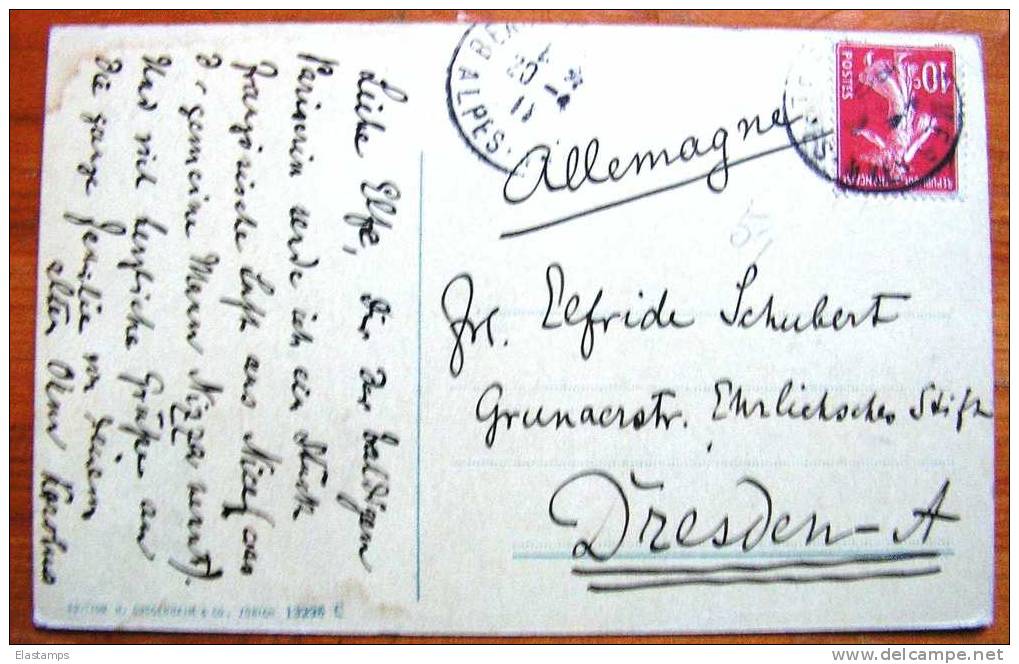 Liebe Elfe,
Dir der baldigen
Pariserin sende ich ein Stück
französische Luft aus Nice (was
d. gemeine Mann Nizza nennt).
Und viel herzliche Grüße an
die ganze Familie von Deinem
alten Ohm
BEA
ALPES
20
11
Allemagne
10c
POSTES
Frl. Elfride Schubert
Grunaerstr. Ehrlichsches Stift
Dresden-A
13235 C
Elastamps
www.delcampe.net